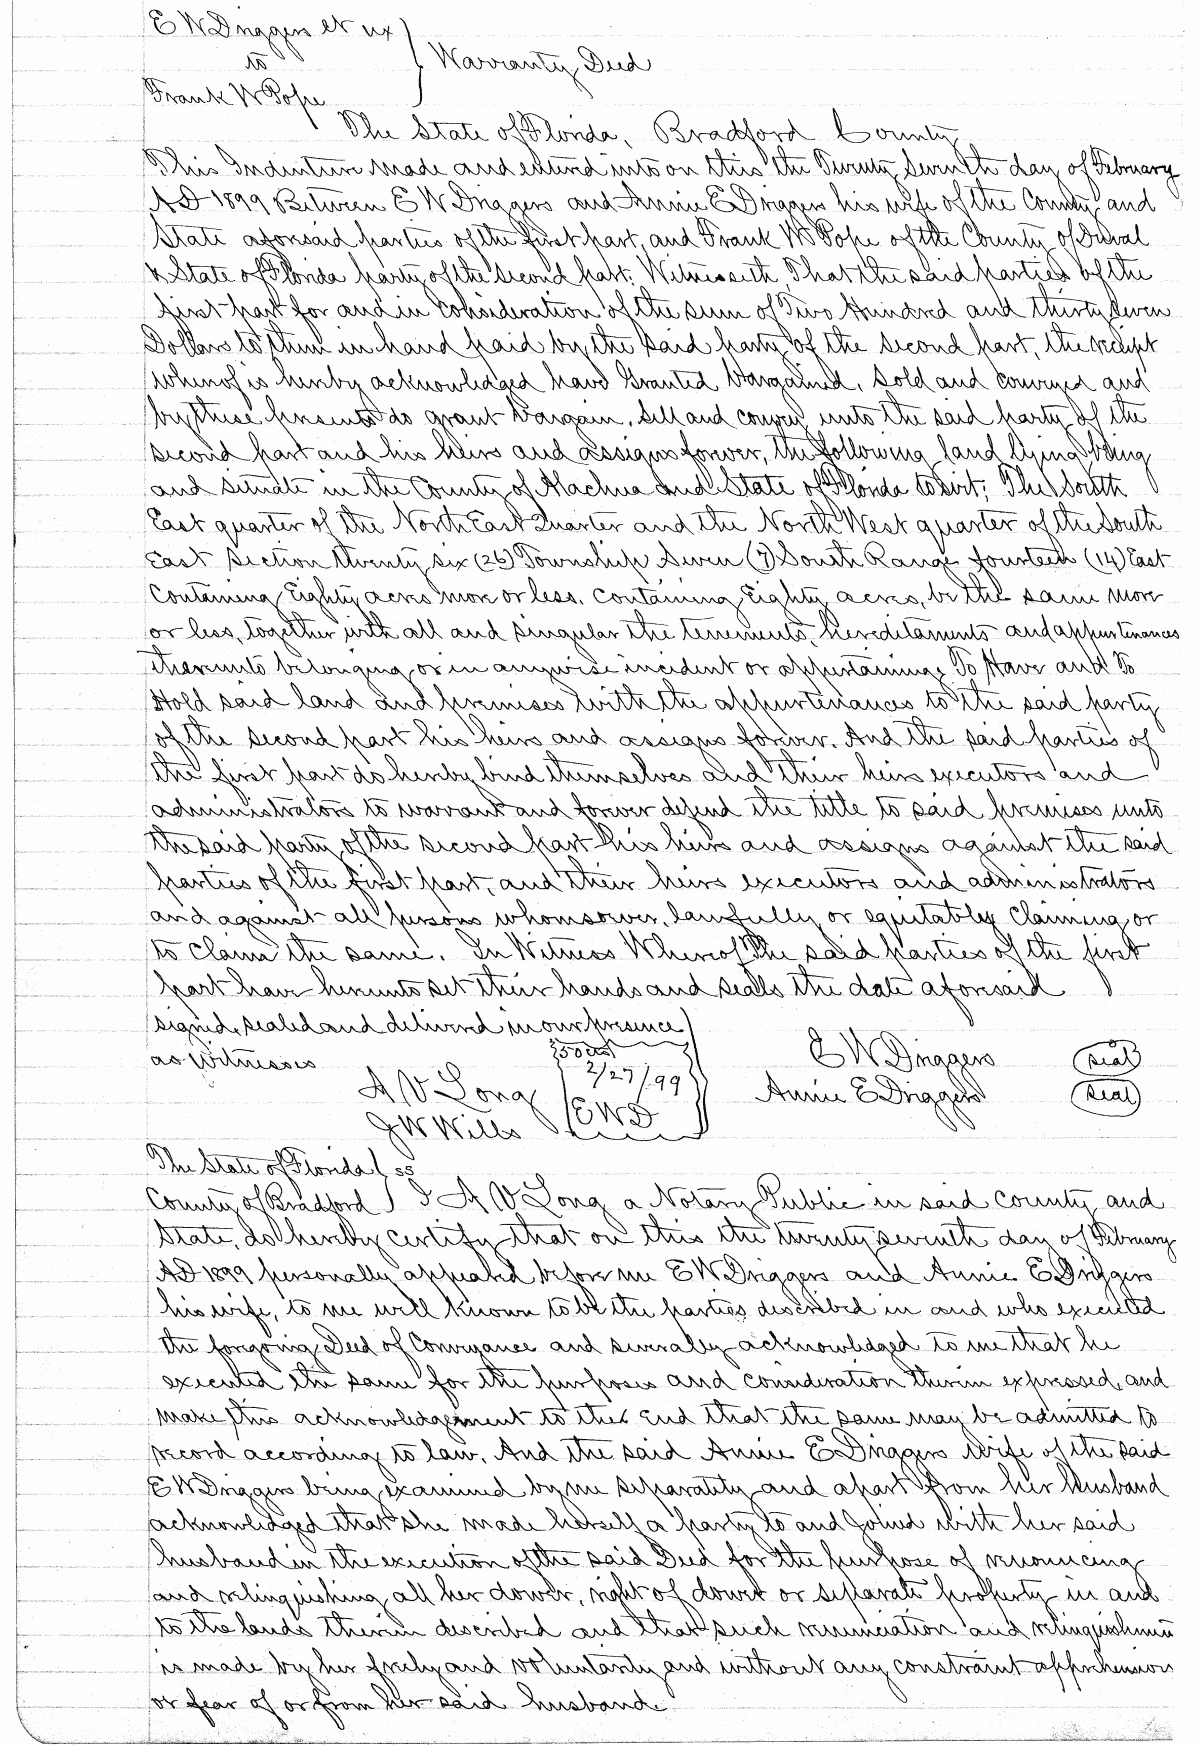 E W Driggers et ux
to
Warranty Deed
Frank W Pope
The State of Florida, Bradford County
This Indenture made and entered into on this the Twenty Seventh day of February
AD 1899 Between E W Driggers and Annie E Driggers his wife of the County and
State aforesaid parties of the first part, and Frank W Pope of the County of Duval
& State of Florida party of the second part, Witnesseth, That the said parties of the
first part for and in consideration of the sum of Two Hundred and thirty seven
Dollars to them in hand paid by the said party of the second part, the receipt
whereof is hereby acknowledged have Granted bargained, sold and conveyed and
by these presents do grant bargain, sell and convey unto the said party of the
second part and his heirs and assigns forever, the following land lying being
and situate in the County of Alachua and State of Florida to wit; The South
East quarter of the North East Quarter and the North West quarter of the South
East Section twenty six (26) Township Seven (7) South Range fourteen (14) East
Containing Eighty acres more or less. Containing Eighty acres, be the same more
or less, together with all and singular the tenements, hereditaments and appurtenances
thereunto belonging or in anywise incident or appertaining, To Have and To
Hold said land and premises with the appurtenances to the said party
of the second part his heirs and assigns forever. And the said parties of
the first part do hereby bind themselves and their heirs executors and
administrators to warrant and forever defend the title to said premises unto
the said party of the second part his heirs and assigns against the said
parties of the first part, and their heirs executors and administrators
and against all persons whomsoever, lawfully or equitably claiming or
to claim the same. In Witness Whereof The said parties of the first
part have hereunto set their hands and seals the date aforesaid
signed, sealed and delivered in our presence
as witnesses
50 cts
E W Driggers (seal)
2/27/99
A V Long
Annie E Driggers (seal)
E W D
J W Wills
The State of Florida ss
County of Bradford I A V Long a Notary Public in said county and
State, do hereby certify that on this the twenty seventh day of February
AD 1899 personally appeared before me E W Driggers and Annie E Driggers
his wife, to me well known to be the parties described in and who executed
the forgoing Deed of Conveyance and severally acknowledged to me that he
executed the same for the purposes and consideration therein expressed, and
make this acknowledgement to the End that the same may be admitted to
record according to law. And the said Annie E Driggers wife of the said
E W Driggers being examined by me separately and apart from her husband
acknowledged that she made herself a party to and joined with her said
husband in the execution of the said Deed for the purpose of renouncing
and relinquishing all her dower, right of dower or separate property in and
to the lands therein described and that such renunciation and relinquishment
is made by her freely and voluntarily and without any constraint apprehension
or fear of or from her said husband.